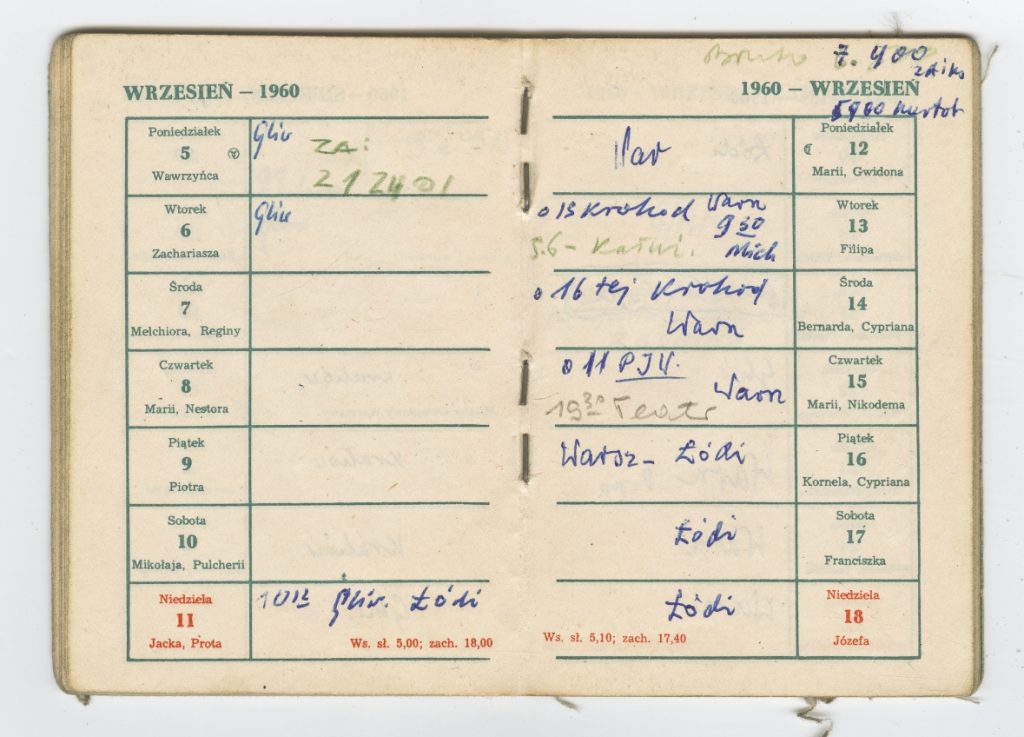 WRZESIEŃ – 1960
Poniedziałek
5
Wawrzyńca
Gliw
ZA:
Wtorek
6
Zachariasza
Gliw
Środa
7
Melchiora, Reginy
Czwartek
8
Marii, Nestora
Piątek
9
Piotra
Sobota
10
Mikołaja, Pulcherii
Niedziela
11
Jacka, Prota
Gliw. Łódź
Ws. sł. 5,00; zach. 18,00
7.400
1960 – WRZESIEŃ
Poniedziałek
12
Marii, Gwidona
War
Wtorek
13
Filipa
Warn
9 30
Mich
Środa
14
Bernarda, Cypriana
o 16 tej
Warn
Czwartek
15
Marii, Nikodema
o 11
Warn
19 30 Teatr
Piątek
16
Kornela, Cypriana
Warsz – Łódź
Sobota
17
Franciszka
Łódź
Niedziela
18
Józefa
Łódź
Ws. sł. 5,10; zach. 17,40